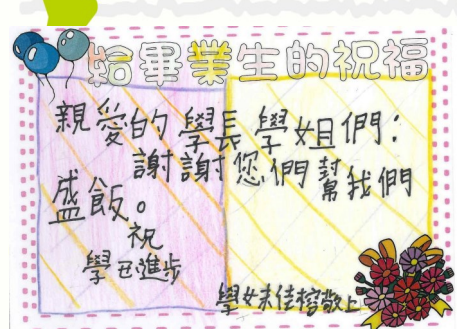 給畢業生的祝福
親愛的學長學姐們：
謝謝您們幫我們
盛飯。
祝
學業進步
學妹佳榕敬上